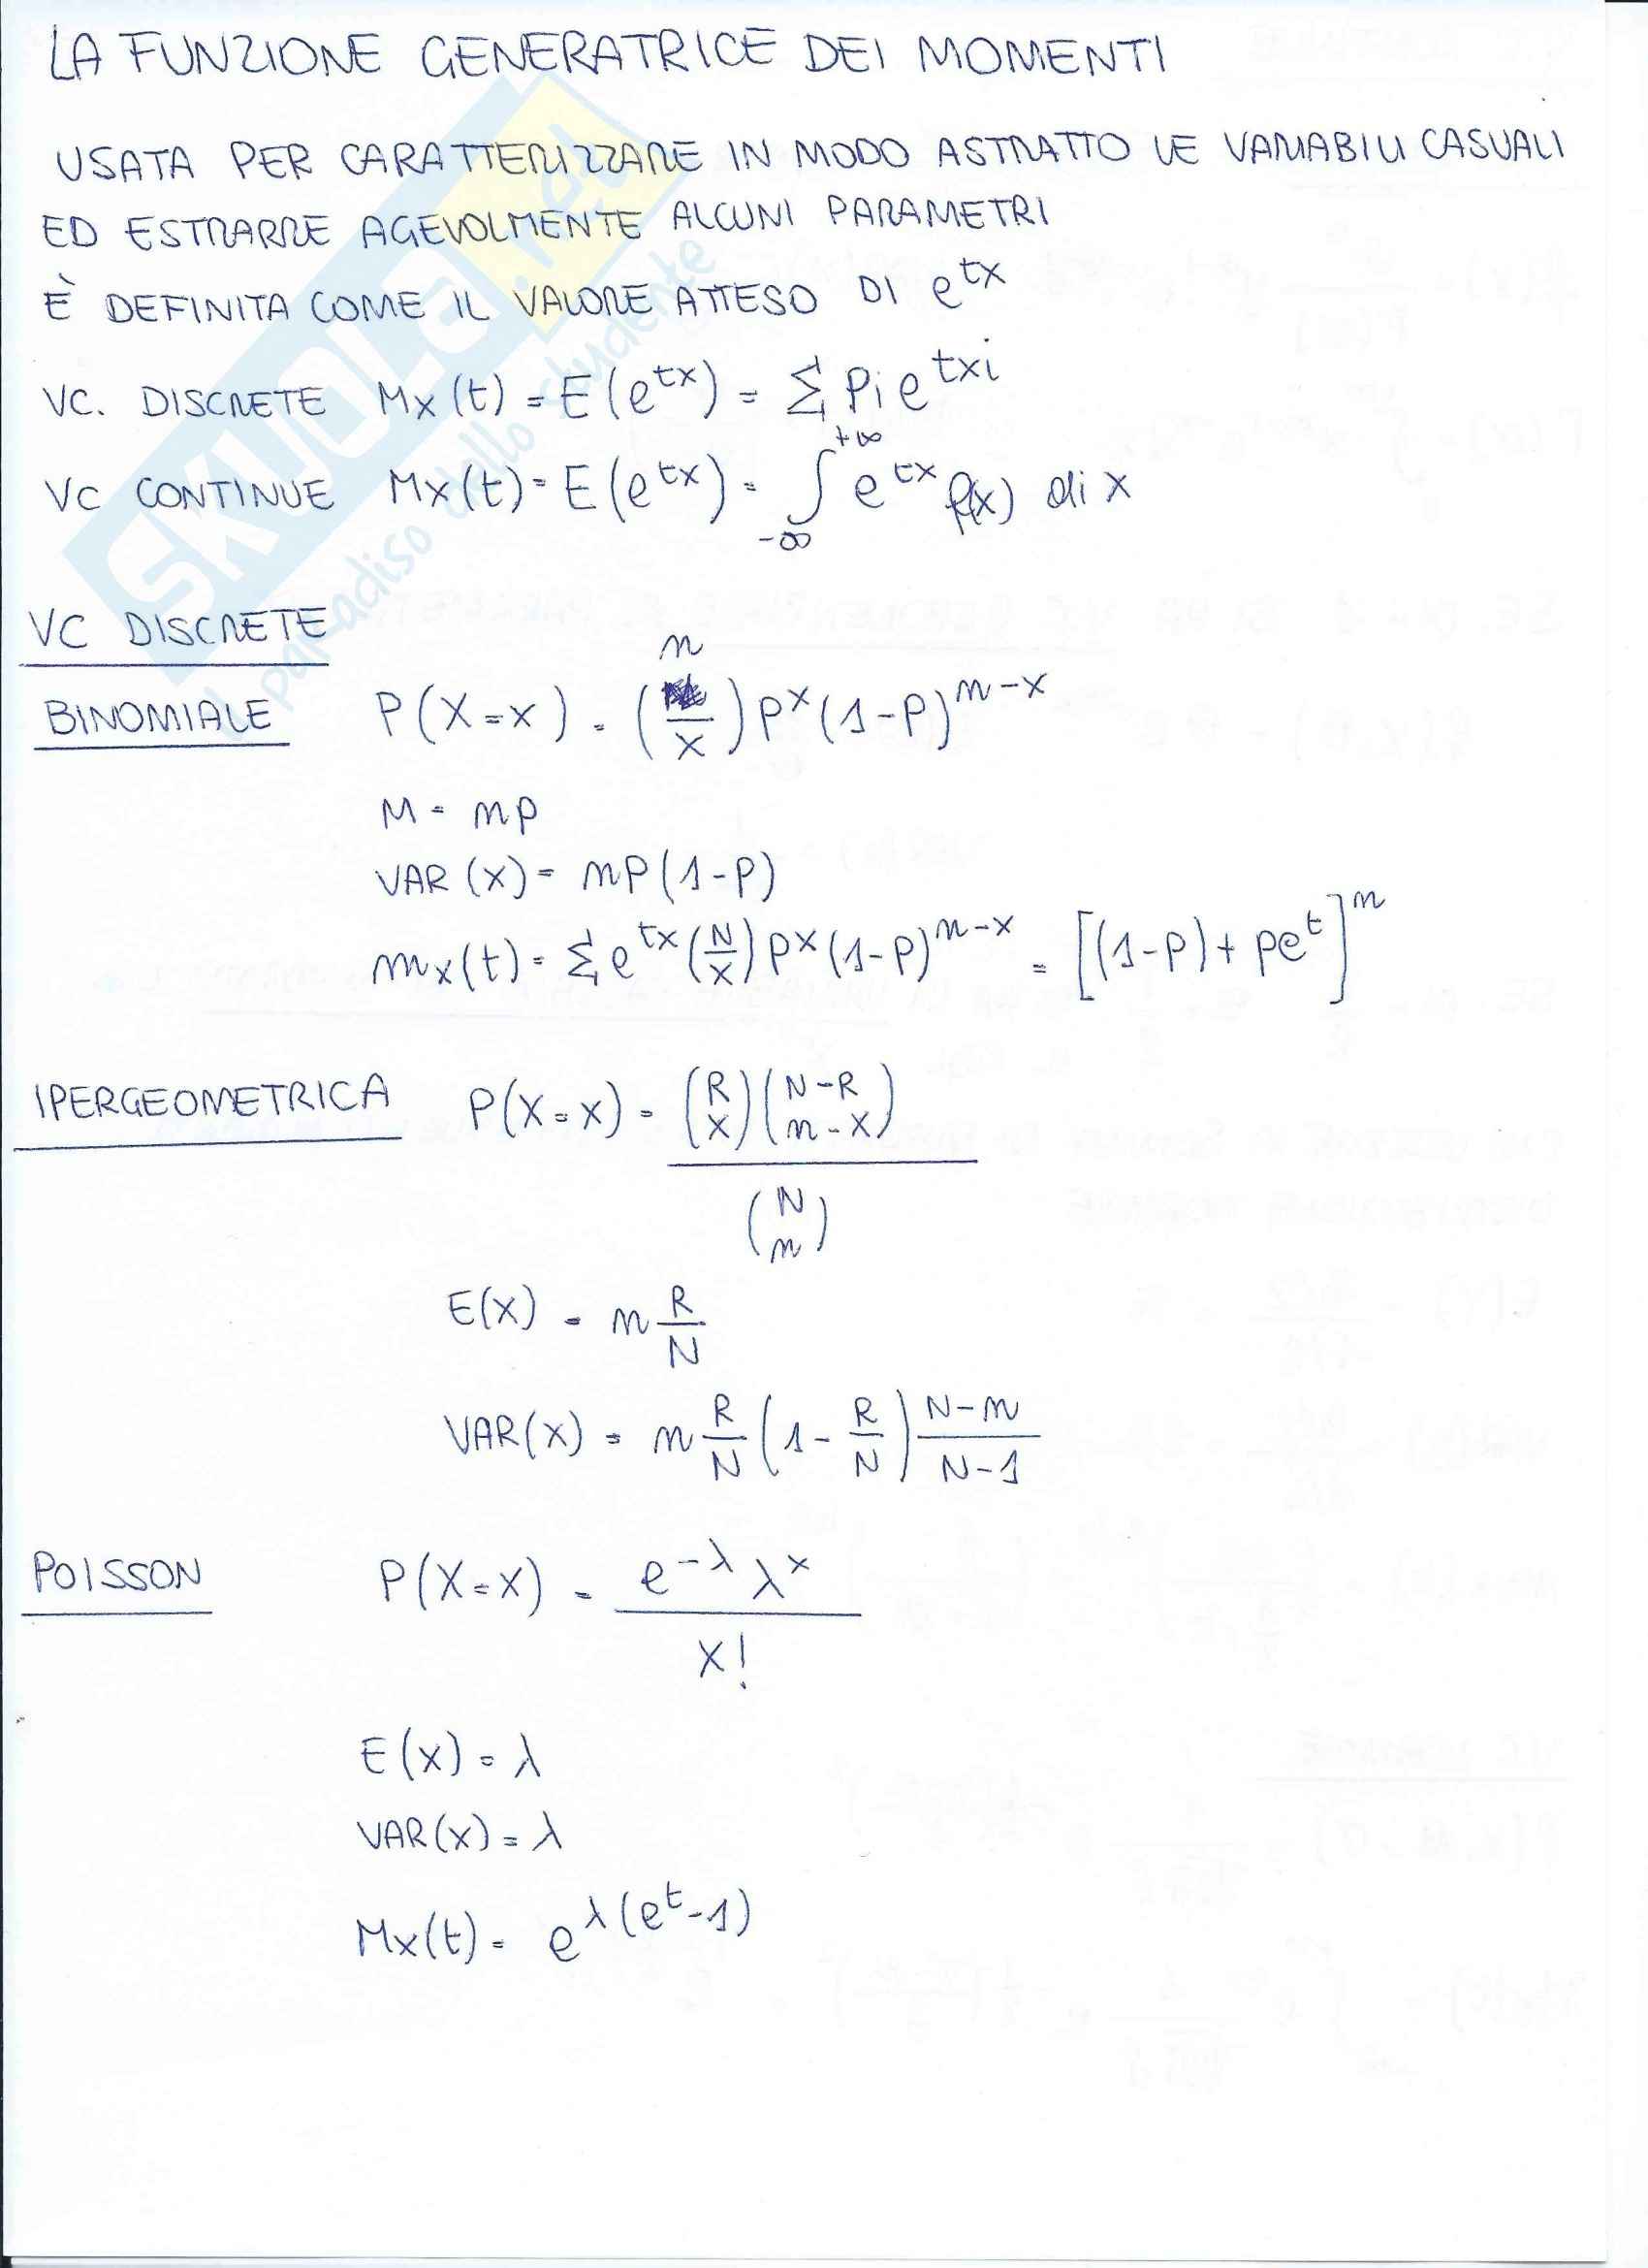 LA FUNZIONE GENERATRICE DEI MOMENTI
USATA PER CARATTERIZZARE IN MODO ASTRATTO LE VARIABILI CASUALI
ED ESTRARRE AGEVOLMENTE ALCUNI PARAMETRI
È DEFINITA COME IL VALORE ATTESO DI e^tx
VC. DISCRETE Mx(t) = E(e^tx) = Σ Pi e^txi
VC CONTINUE Mx(t) = E(e^tx) = ∫_-∞^+∞ e^tx f(x) di x
VC DISCRETE
BINOMIALE P(X=x) = (n/x) P^x (1-P)^n-x
M = np
VAR (x) = nP(1-P)
mx(t) = Σ e^tx (N/x) P^x (1-P)^n-x = [(1-P) + pe^t]^n
IPERGEOMETRICA P(X=x) = (R x)(N-R n-x) / (N n)
E(x) = n R/N
VAR(x) = n R/N (1 - R/N) N-n/N-1
POISSON P(X=x) = e^-λ λ^x / x!
E(x) = λ
VAR(x) = λ
Mx(t) = e^λ(e^t-1)
SKUOLA.net
il paradiso dello studente